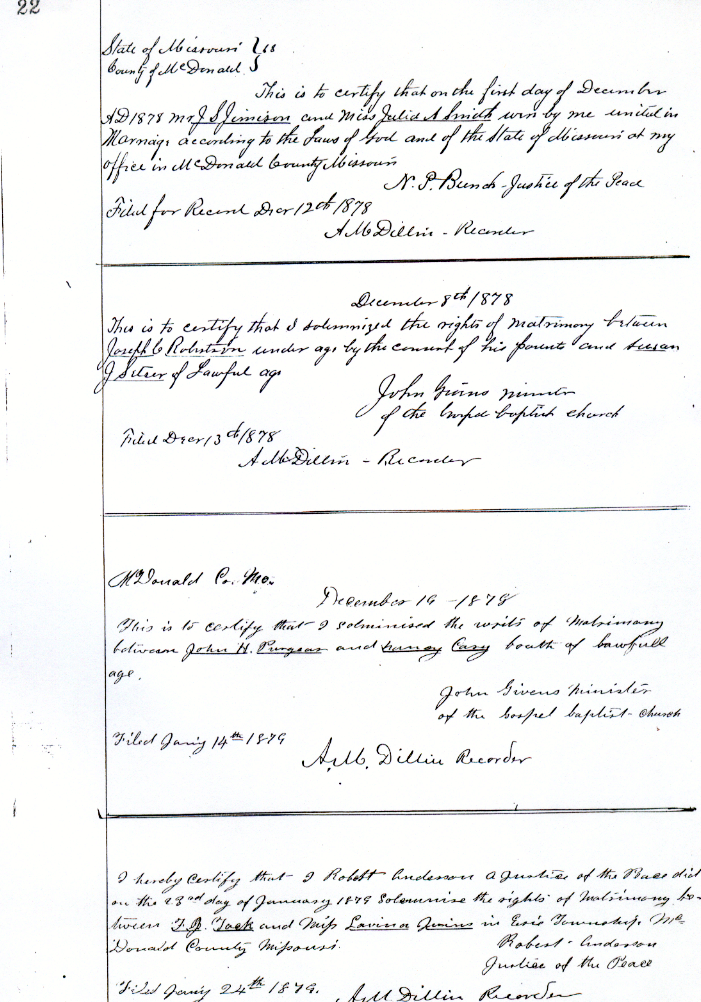 22
State of Missouri } ss
County of McDonald }
This is to certify that on the first day of December
AD 1878 Mr J S Jimison and Miss Julia A Smith wer by me united in
Marriage according to the Laws of God and of the State of Missouri at my
office in McDonald County Missouri
N. P. Bunch - Justice of the Peace
Filed for Record Decr 12th 1878
A M Dillin - Recorder
December 8th 1878
This is to certify that I solemnized the rights of matrimony between
Joseph C Robertson under age by the consent of his parents and Susan
J Sitser of Lawful age
John Givins minister
of the baptist church
Filed Decr 13th 1878
A McDillin - Recorder
McDonald Co. Mo.
December 16 - 1878
This is to certify that I solminised the writs of Matrimany
between John H. and Nancy Casy booth of lawfull
age.
John Givens Minister
of the Gospel baptist - church
Filed Jany 14th 1879
A. M. Dillin Recorder
I hereby certify that I Robert Anderson a Justice of the Peace did
on the 23rd day of January 1879 Solemnise the rights of Matrimony be-
tween F. J. and Miss Lavina in Township Mc-
Donald County Missouri.
Robert Anderson
Justice of the Peace
Filed Jany 24th 1879.
A M Dillin Recorder